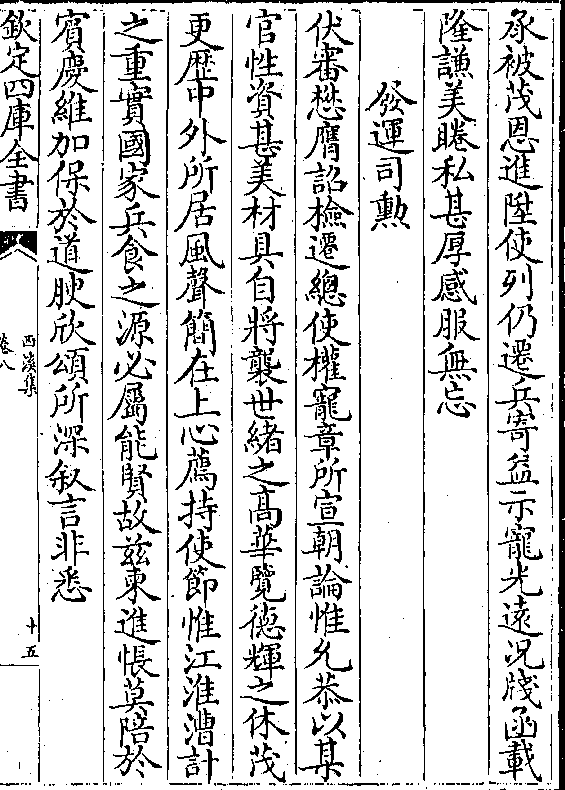 承被茂恩進陞使列仍遷兵寄益示寵光遠況牋函載
隆謙美睠私甚厚感服無忘
發運司勲
伏審懋膺詔檢遷總使權寵章所宣朝論惟允恭以某
官性資甚美材具自將襲世緒之高華覽德輝之休茂
更歴中外所居風聲簡在上心薦持使節惟江淮漕計
之重實國家兵食之源必屬能賢故兹柬進悵莫陪於
賓慶維加保於道腴欣頌所深叙言非悉
欽定四庫全書
西溪集
卷八
十五